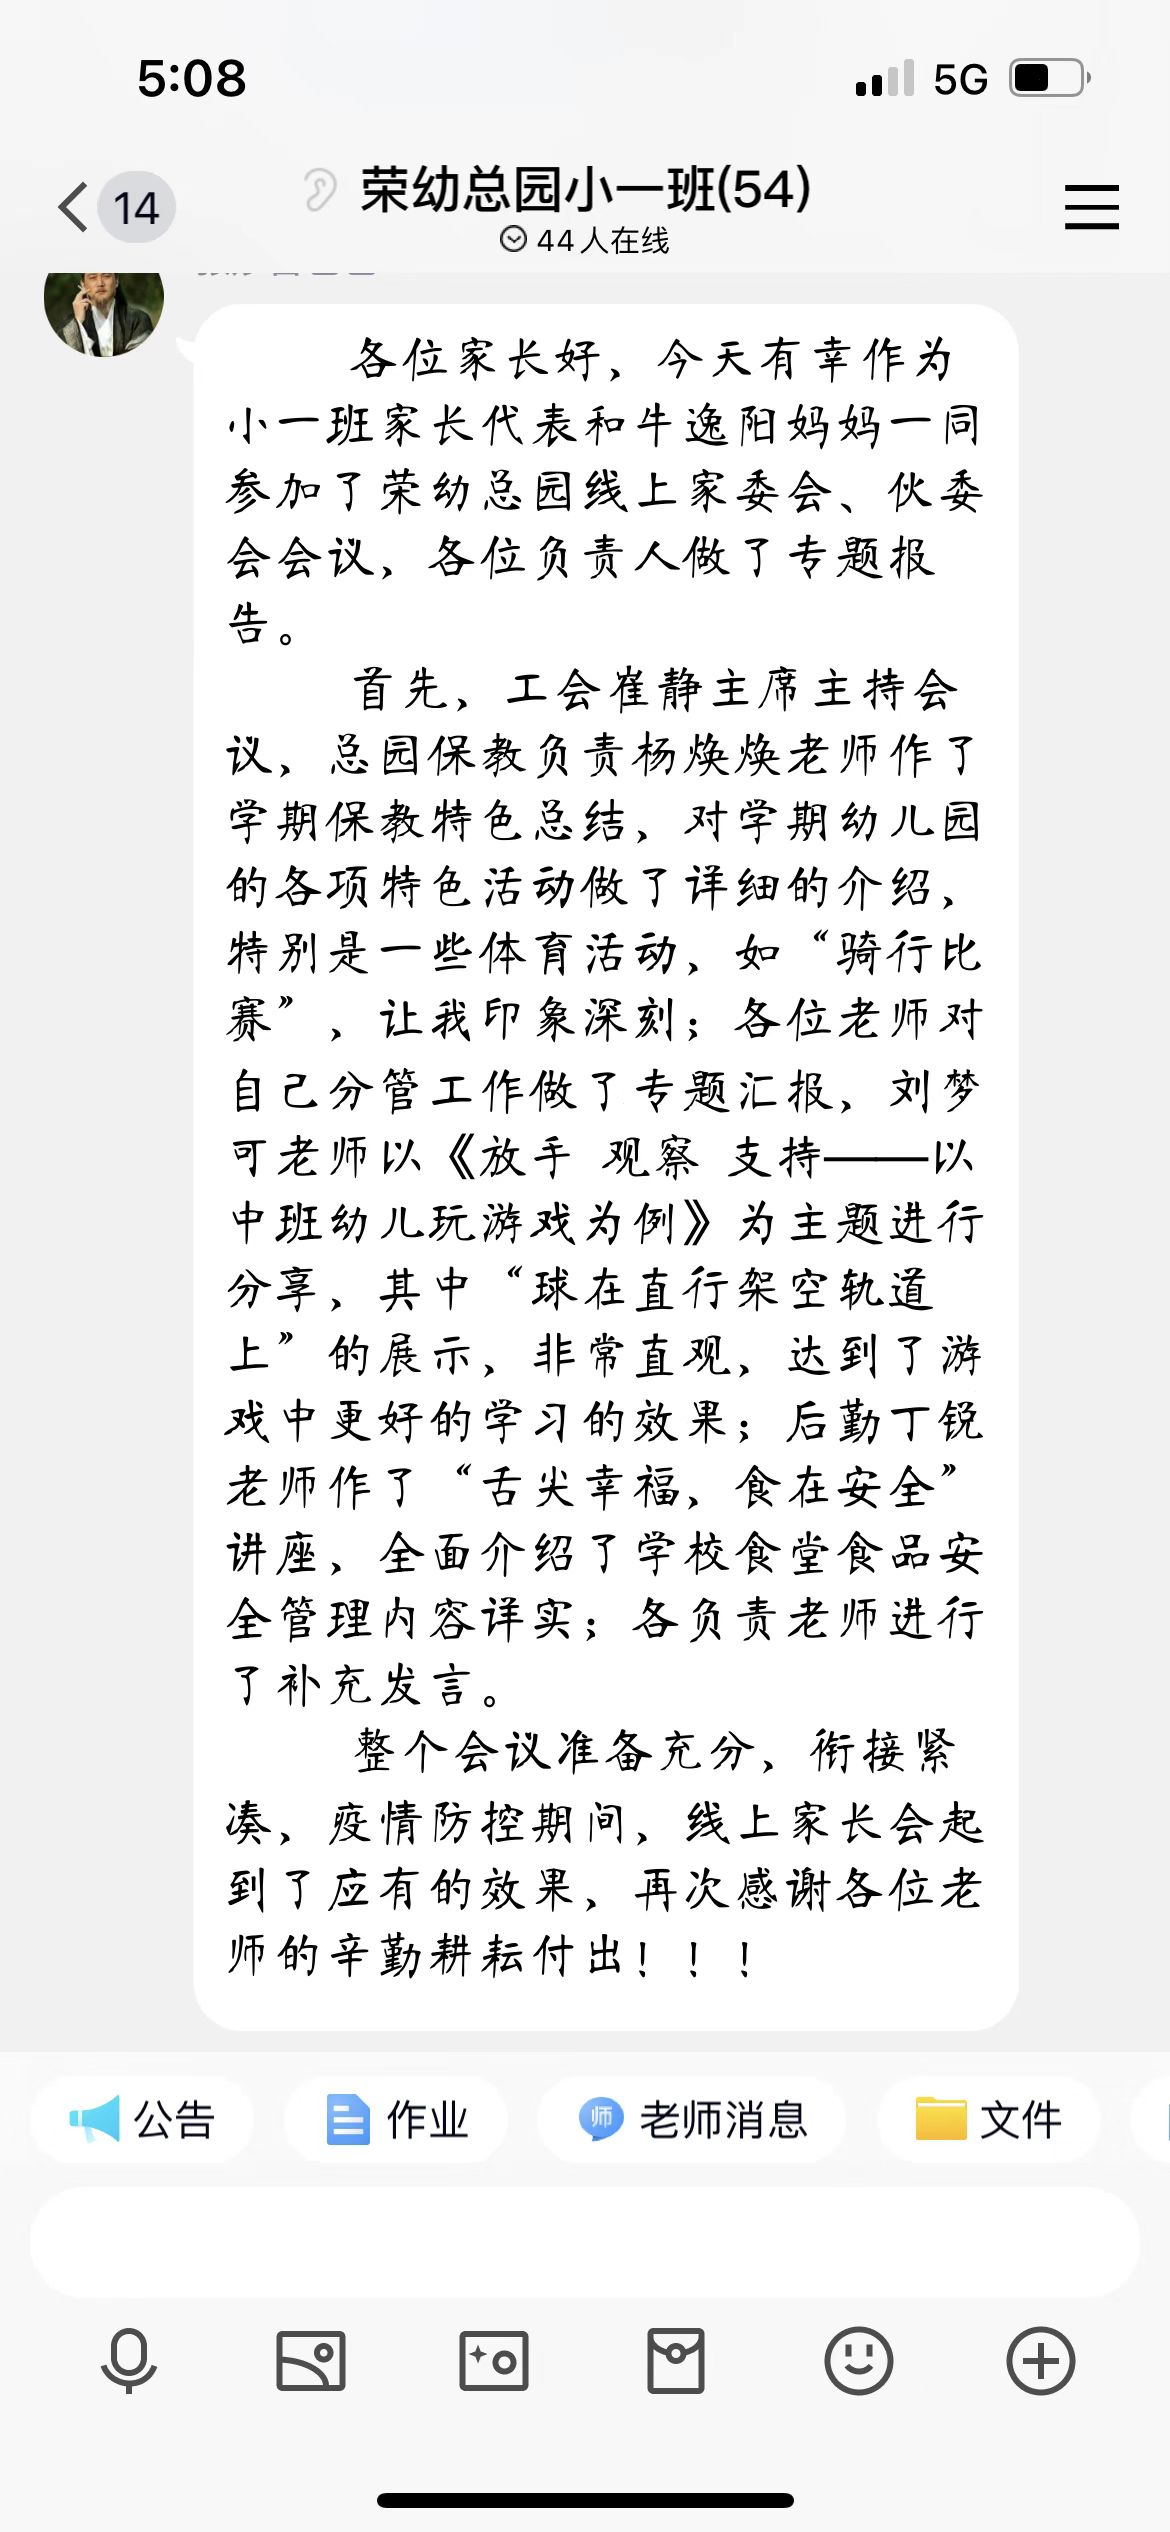 5:08
5G
14
荣幼总园小一班(54)
44人在线
各位家长好，今天有幸作为
小一班家长代表和牛逸阳妈妈一同
参加了荣幼总园线上家委会、伙委
会会议，各位负责人做了专题报
告。
首先，工会崔静主席主持会
议，总园保教负责杨焕焕老师作了
学期保教特色总结，对学期幼儿园
的各项特色活动做了详细的介绍，
特别是一些体育活动，如“骑行比
赛”，让我印象深刻；各位老师对
自己分管工作做了专题汇报，刘梦
可老师以《放手 观察 支持——以
中班幼儿玩游戏为例》为主题进行
分享，其中“球在直行架空轨道
上”的展示，非常直观，达到了游
戏中更好的学习的效果；后勤丁锐
老师作了“舌尖幸福，食在安全”
讲座，全面介绍了学校食堂食品安
全管理内容详实；各负责老师进行
了补充发言。
整个会议准备充分，衔接紧
凑，疫情防控期间，线上家长会起
到了应有的效果，再次感谢各位老
师的辛勤耕耘付出！！！
公告
作业
师
老师消息
文件